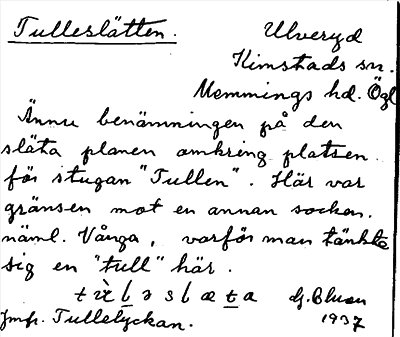 Tulleslätten. Ulveryd
Kimstads sn.
Memmings hd. Ögl
Ännu benämningen på den
släta planen omkring platsen
för stugan "Tullen". Här var
gränsen mot en annan socken.
näml. Vånga, varför man tänkte
sig en "tull" här.
G. Bluon
Jmfr. Tullelyckan. 1937